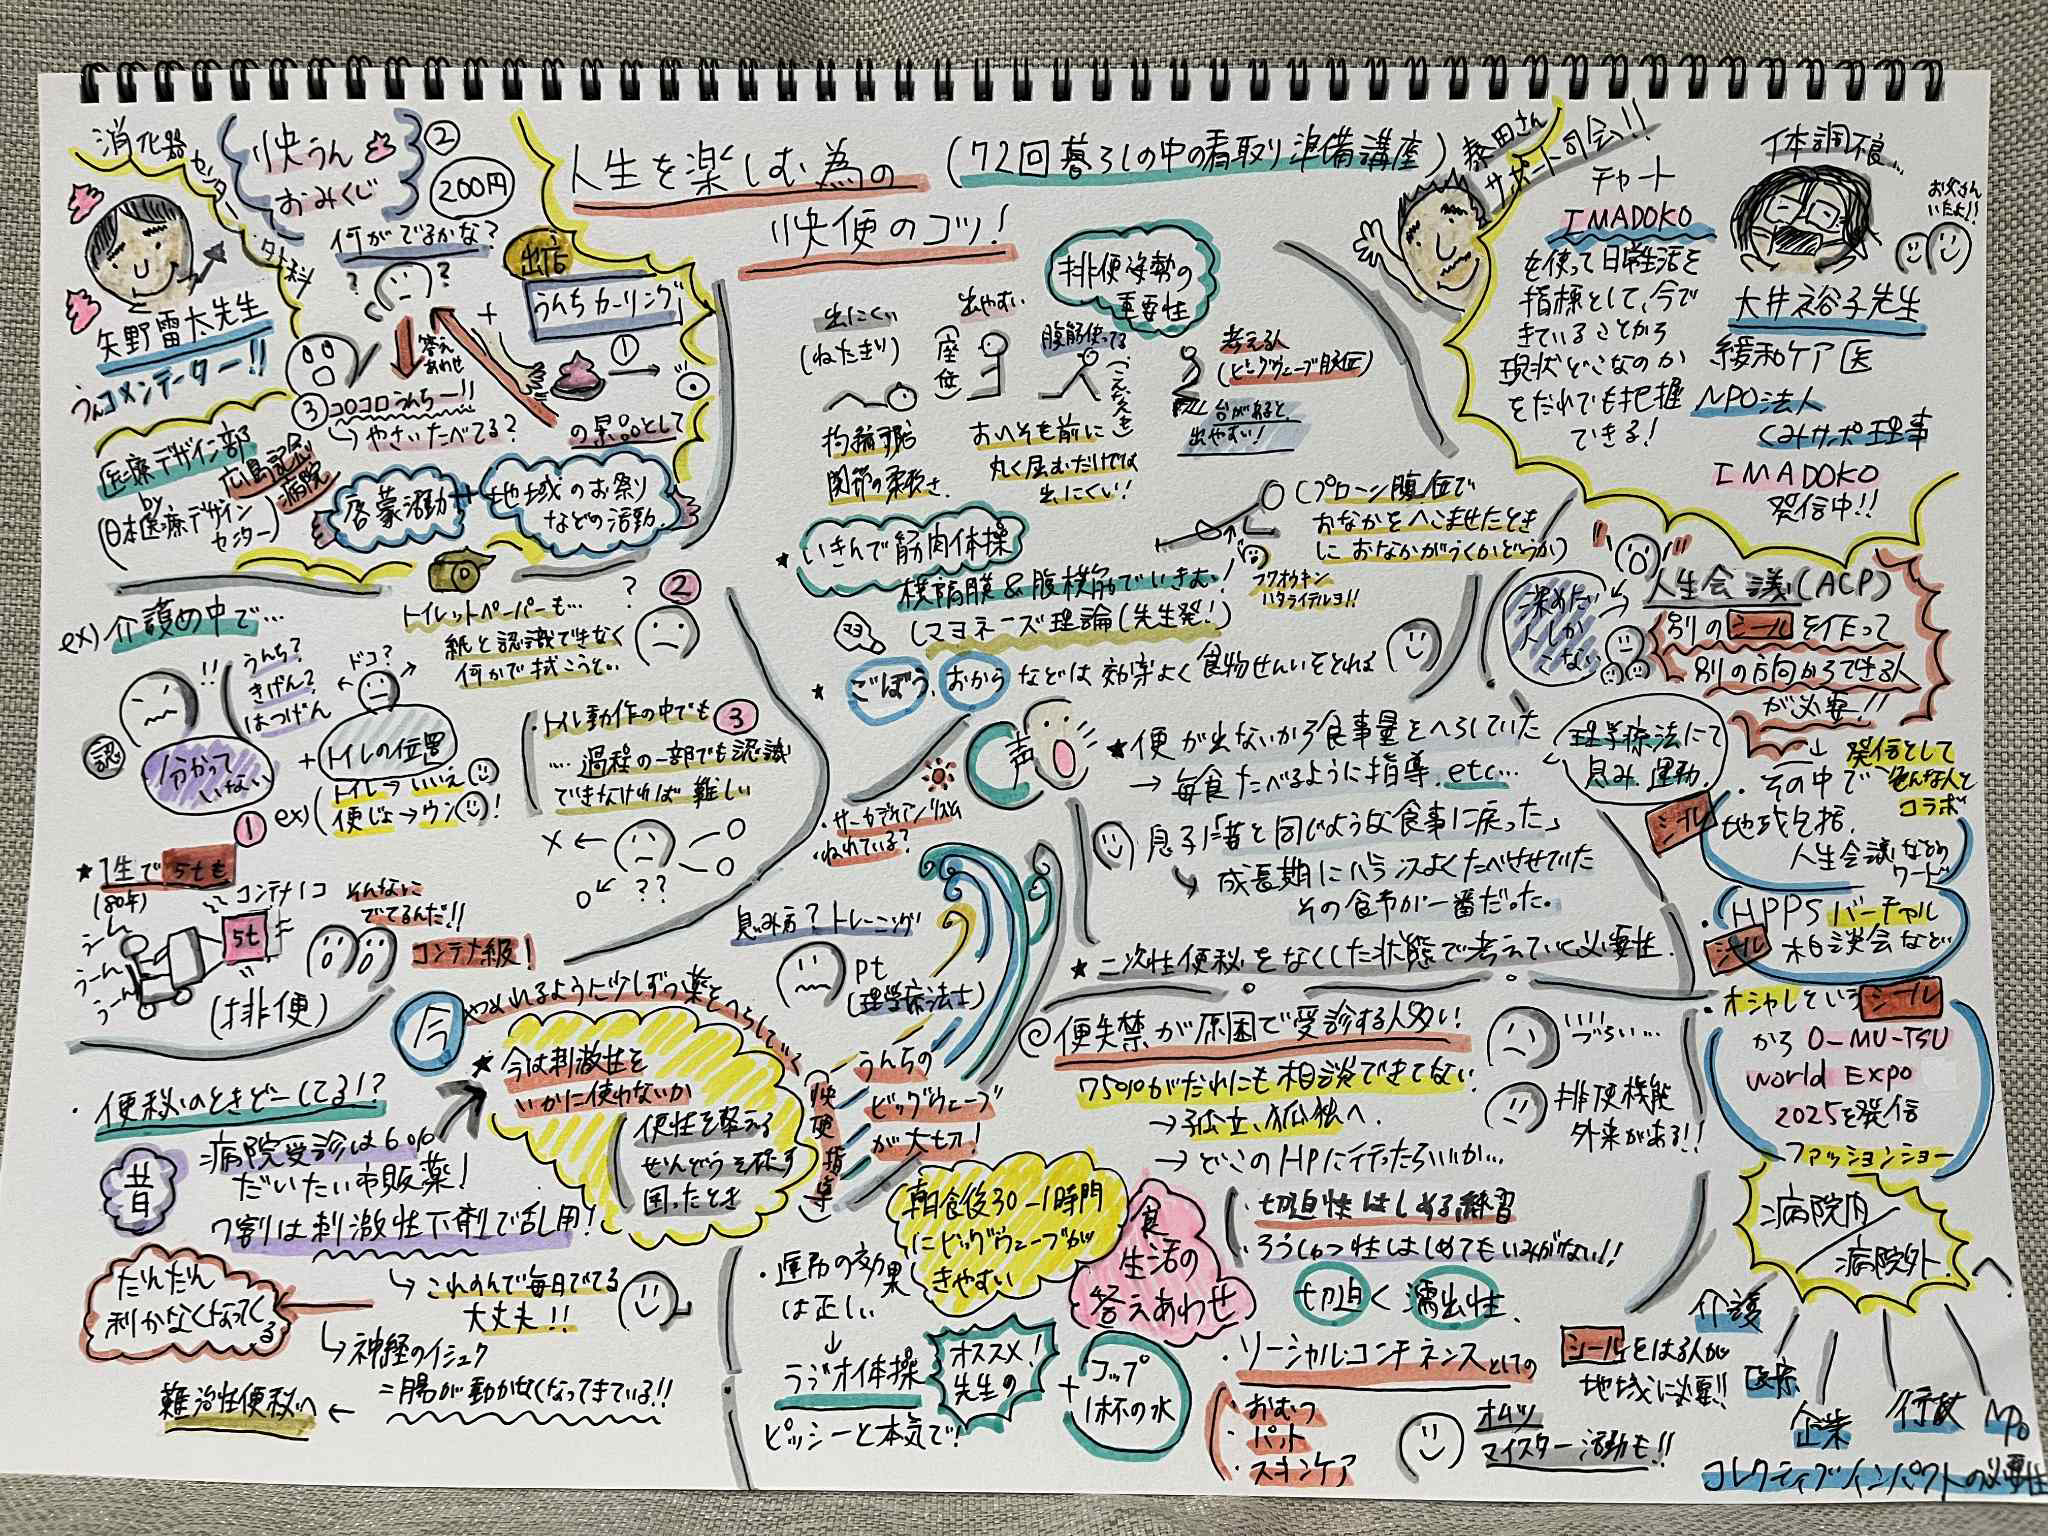 人生を楽しむ為の
(72回暮らしの中の看取り準備講座)
快便のコツ!
消化器センター
外科
矢野雷太先生
うんコメンテーター!!
快うん
おみくじ
②
200円
何がでるかな?
出店
うんちカーリング
①
+
答え
あわせ
③コロコロうんちー!!
やさいたべてる?
の景品として
医療デザイン部
by
(日本医療デザイン
センター)
広島記念
病院
啓蒙活動
+
地域のお祭り
などの活動
ex)介護の中で…
うんち?
きげん?
はつげん
認
分かって
いない
①
+
ドコ?
トイレの位置
ex)(トイレ→いいえ
便じょ→ウン!
トイレットペーパーも…
?
②
紙と認識できなく
何かで拭こうと。
・トイレ動作の中でも
③
…過程の一部でも認識
できなければ難しい
??
★1生で5tも
(80年)
うーん
うーん
うーん
うーん
コンテナ1コ
5t
そんなに
でてるんだ!!
コンテナ級!
(排便)
・便秘のときどーしてる!?
昔
病院受診は6%
だいたい市販薬!
7割は刺激性下剤で乱用!
これのんで毎日でてる
大丈夫!!
だんだん
利かなくなってくる
神経のイシュク
=腸が動かなくなってきている!!
難治性便秘へ
今
やめれるように少しずつ薬をへらしていく
★今は刺激性を
いかに使わないか
便性を整える
ぜんどうを促す
困ったとき
快便指導
うんちの
ビッグウェーブ
が大切!
排便姿勢の
重要性
出にくい
(ねたきり)
拘縮予防
関節の柔軟さ
出やすい
(座位)
腹筋使ってる
おへそを前に
丸く屈むだけでは
出にくい!
考える人
(ビッグウェーブ腹圧)
台があると
出やすい!
★いきんで筋肉体操
横隔膜&腹横筋でいきむ!
(マヨネーズ理論(先生発!)
マヨ
(プローン腹位で
おなかをへこませたとき
におなかがうくかどうか)
フクオウキン
ハタライテルヨ!!
★ごぼう、おからなどは効率よく食物せんいをとれる
声
・サーカディアンリズムと
ねれている?
息み方?トレーニング
pt
(理学療法士)
★便が出ないから食事量をへらしていた
→毎食たべるように指導.etc…
息子「昔と同じような食事に戻った」
成長期にバランスよくたべさせていた
その食事が一番だった。
★二次性便秘をなくした状態で考えていく必要性.
◎便失禁が原因で受診する人多い!
75%がだれにも相談できてない.
→孤立、孤独へ.
→どこのHPに行ったらいいか…
づらい…
排便機能
外来がある!!
・切迫性はしめる練習
・ろうしゅつ性はしめてもいみがない!!
切迫く漏出性.
朝食後30-1時間
にビッグウェーブが
きやすい
食
生活の
答えあわせ
・運動の効果
は正しい
↓
ラジオ体操
ピッシーと本気で!
オススメ!
先生の
+
コップ
1杯の水
・ソーシャル・コンチネンスとしての
・おむつ
・パット
・スキンケア
オムツ
マイスター活動も!!
シールをはる人が
地域に必要!!
サポート司会!!
チャート
IMADOKO
を使って日常生活を
指標として、今で
きていることから
現状どこなのか
をだれでも把握
できる!
体調不良…
お父さん
いたよ!!
大井裕子先生
緩和ケア医
NPO法人
くみサポ理事
IMADOKO
発信中!!
人生会議(ACP)
別のシールを作って
別の方向からできる人
が必要!!
理学療法にて
息み.運動.
発信として
色んな人と
コラボ
・その中で
シール
地域包括.
人生会議などの
ワード
・HPPSバーチャル
シール
相談会など
・オシャレというシール
からO-MU-TSU
World Expo
2025を発信
ファッションショー
病院内
病院外
介護
医療
企業
行政
NPO
コレクティブインパクトの必要性